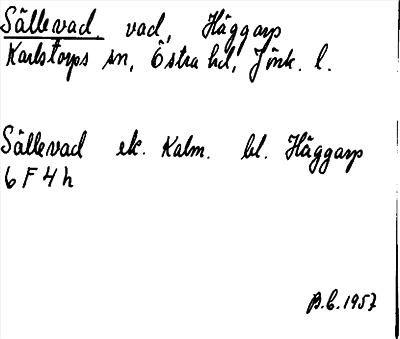 Sällevad vad, Häggarp
Karlstorps sn, Östra hd, Jönk. l.
Sällevad ek. Kalm. bl. Häggarp
6 F 4 h
B.C. 1957